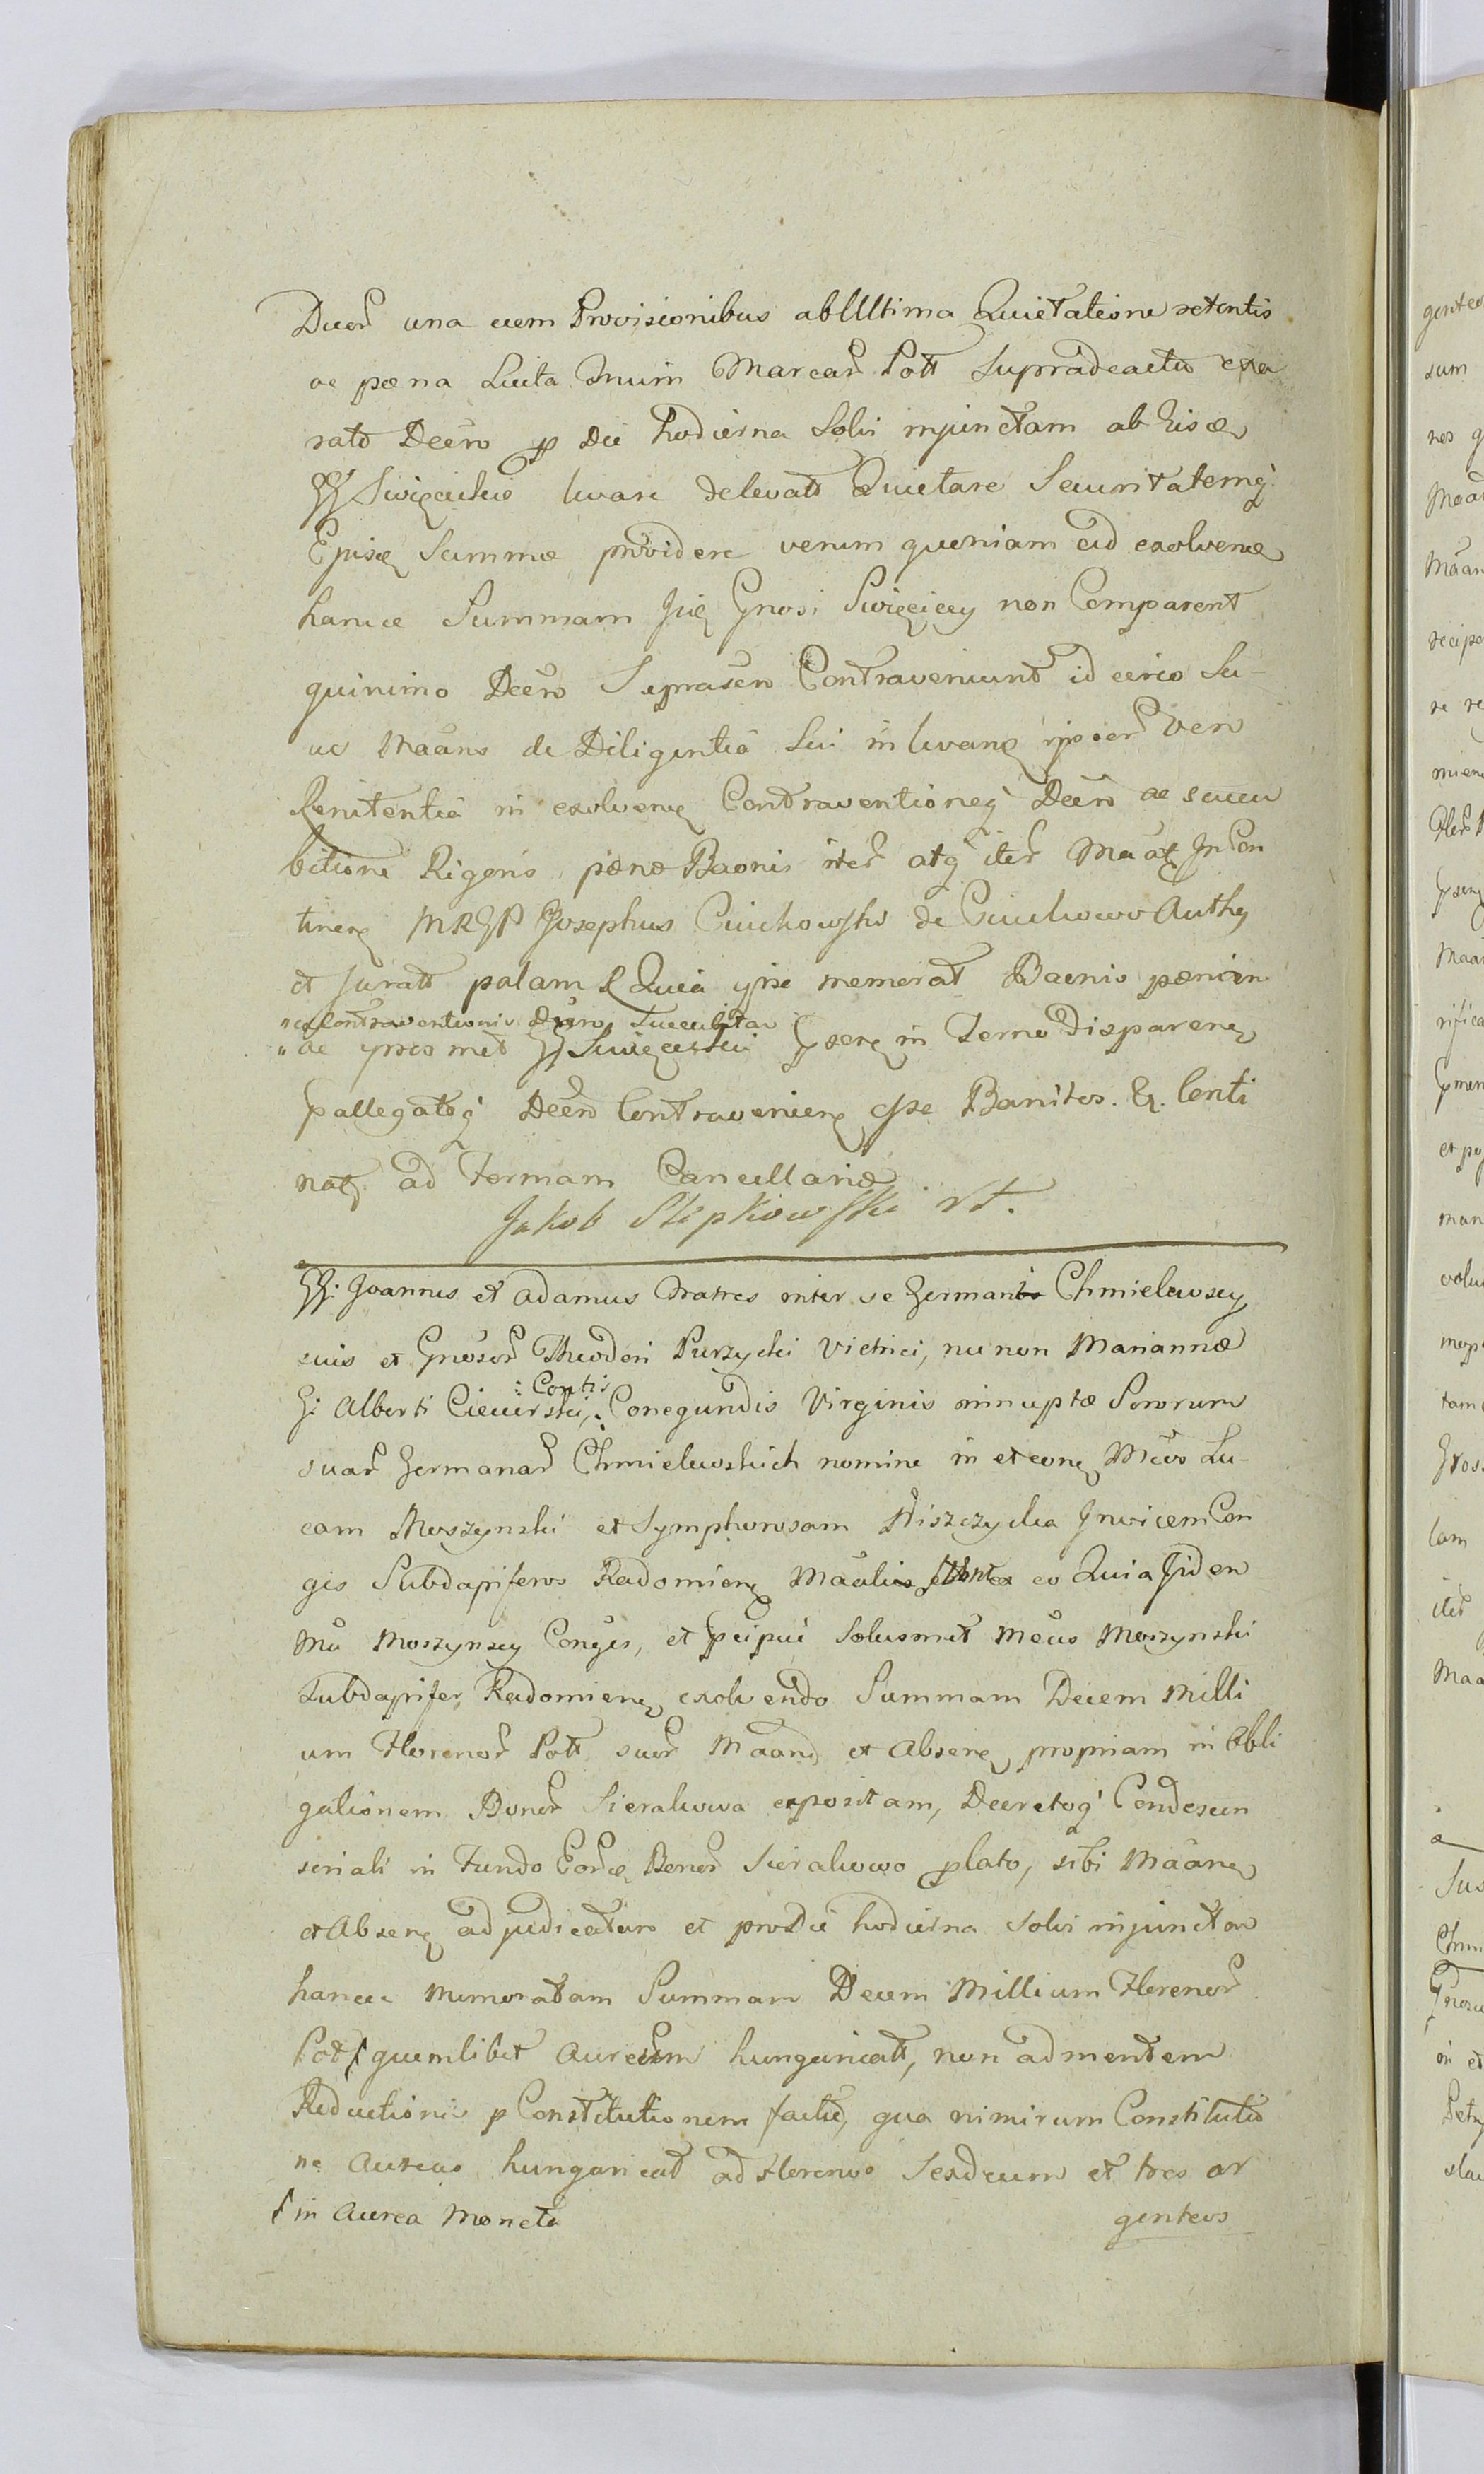 Ducor una cum Provisionibus ab Ultima Quietatione retentis
ac pœna Luita Marcar Poll Supradeacto exa
rato Decro p Die hodierna Solvi injunctam ab Eisdę
GG Święcickis levare delevato Quietare Securitatemq
Summæ providere verum quoniam ad exolvenę
hancce Summam Gnosi Swięciccy non Comparent
quinimo Decro Suprascro Contraveniunt id circo Su
us Maans de Diligentia Sui in levanę ipsor vero
Renitentia in exolvenę Contraventioneq Decri ac succu
bitione Rigoris pœnæ Baonis iter atq iter Maatę In Con
tinenę MRGP Josephus Cuichowski de Cuichowo Authę
et Juratt palam R Quia ipse memorat Baonis pœnam
" ex Contraventionis Decro, Succubitam
" ac ipsos met GG Swięcickii in Termo Disparenę
pallegatoq Decro Contravenienę esse Banitos. R. Conti
natę. ad Formam Cancellariæ
Jakob Slepkowski
GG: Joannes et Adamus Fratres inter se Germani Chmielewscy
suis et Gnosor Theodori Purzycki Victrici, nec non Mariannæ
: Contis
G: Alberti Ciecierski, Conegundis Virginis innuptæ Sororum
suar Germanar Chmielewskich nomine in et conę Mcos Lu
cam Moszynski et Symphorosam Niszczycka Invicem Con
ges Subdapiferos Radomienę Maali eo Quia Iidem
Mci Moszynscy Conges, et pcipue Solusmet Mcus Moszynski
Subdapifer Radomienę exolvendo Summam Decem Milli
um Florenor Poll suor Maanę et Absenę propriam in Obli
gationem Bonor Sierakowa expositam, Decretoq Condescen
soriali in Fundo Eordę Bonor Sierakowo plato, sibi Maanę
et Absenę adjudicatam et pro Die hodierna Solvi injunctam
hancce memoratam Summam Decem Millium Florenor
Poll quemlibet Aureum hungaricalt, non ad mentem
Reductionis p Constitutionem factæ, qua nimirum Constitutio
ne Aureus hungarical ad Florenos Sexdecim et tres ar
in Aurea Moneta
genteos